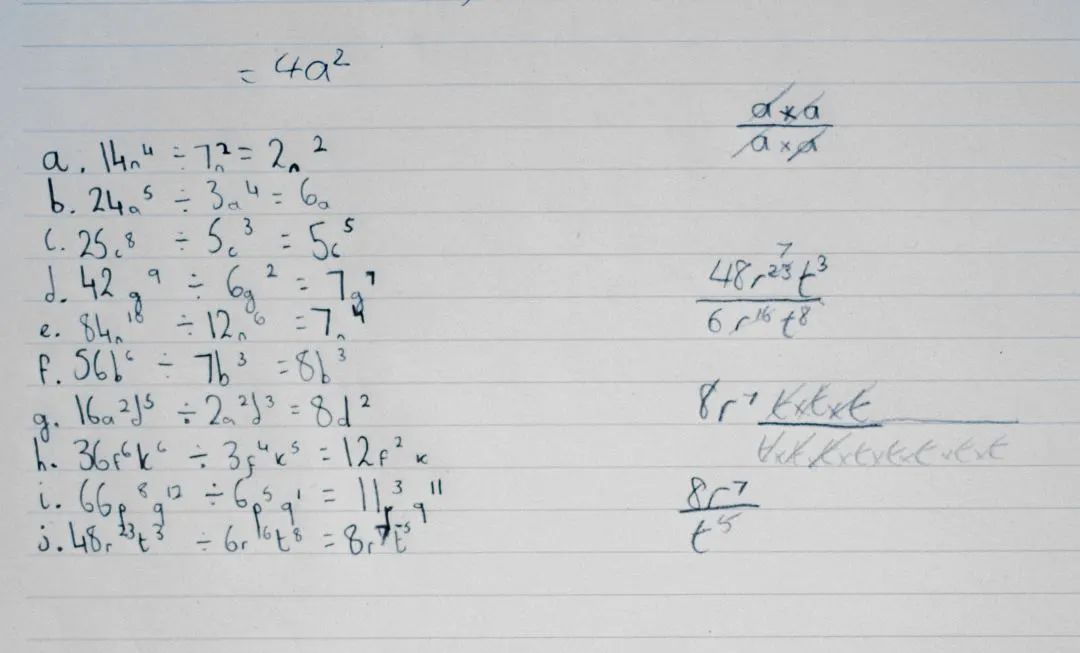 = 4a²
a×a
a×a
a. 14n⁴ ÷ 7n² = 2n²
b. 24a⁵ ÷ 3a⁴ = 6a
c. 25c⁸ ÷ 5c³ = 5c⁵
d. 42g⁹ ÷ 6g² = 7g⁷
e. 84n¹⁰ ÷ 12n⁶ = 7n⁴
f. 56b⁶ ÷ 7b³ = 8b³
g. 16a²d⁵ ÷ 2a²d³ = 8d²
h. 36f⁶k⁶ ÷ 3f⁴k⁵ = 12f²k
i. 66p⁸q¹² ÷ 6p⁵q¹ = 11p³q¹¹
j. 48r²³t³ ÷ 6r¹⁶t⁸ = 8r⁷t⁻⁵
7
48r²³t³
6r¹⁶t⁸
8r⁷ t×t×t
t×t×t×t×t×t×t×t
8r⁷
t⁵